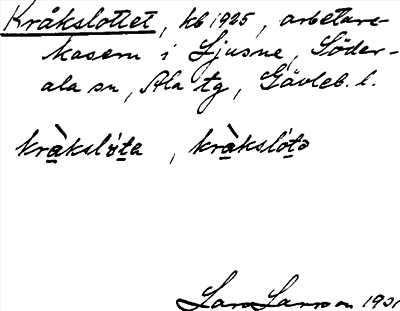 Kråkslottet, kb 1925, arbetare-
kasern i Ljusne, Söder-
ala sn, Ala tg, Gävleb. l.
kràkslóta, kràkslótə
Lars Larsson 1931